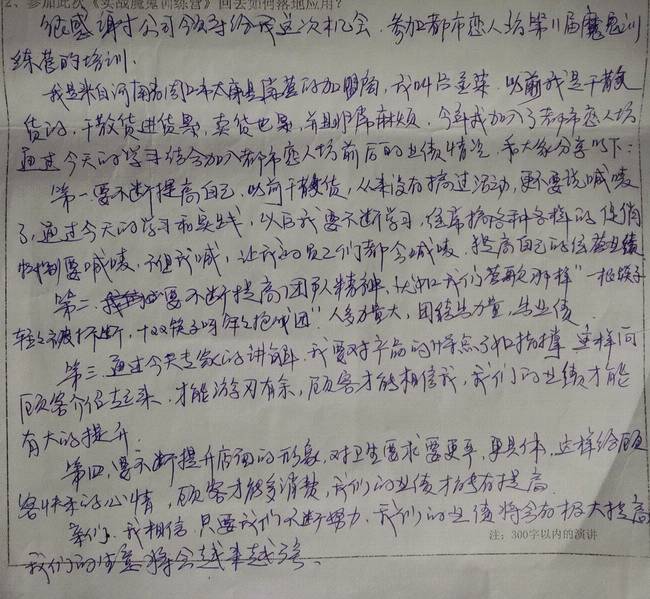 2、参加此次《实战魔鬼训练营》回去如何落地应用？
很感谢公司领导给我这次机会，参加都市恋人坊第11届魔鬼训
练营的培训。
我是来自河南省周口市太康县的加盟商，我叫吕，以前我是干散
货的，干散货进货累，卖货也累，并且非常麻烦，今年我加入了都市恋人坊
通过今天的学习结合加入都市恋人坊前后的业绩情况，和大家分享以下：
第一，要不断提高自己，以前干散货，从来没有搞过活动，更不要说喊唛
了，通过今天的学习和实践，以后我要不断学习，经常搞各种各样的促销
要喊唛，不但我喊，让我的员工们都会喊唛，提高自己的业绩
第二，要不断提高团队精神，就和我们营歌那样"一根筷子
轻轻被折断，十双筷子牢牢抱成团"人多力量大，团结力量，业绩
第三，通过今天专家的讲解，我要对产品的特点了如指掌，这样向
顾客介绍起来，才能游刃有余，顾客才能相信我，我们的业绩才能
有大的提升。
第四，要不断提升店铺的形象，对卫生要求要更，更具体，这样给顾
客快乐的心情，顾客才能多消费，我们的业绩才能有提高
亲们，我相信，只要我们不断努力，我们的业绩将会有极大提高
注：300字以内的演讲
我们的生意将会越来越强。